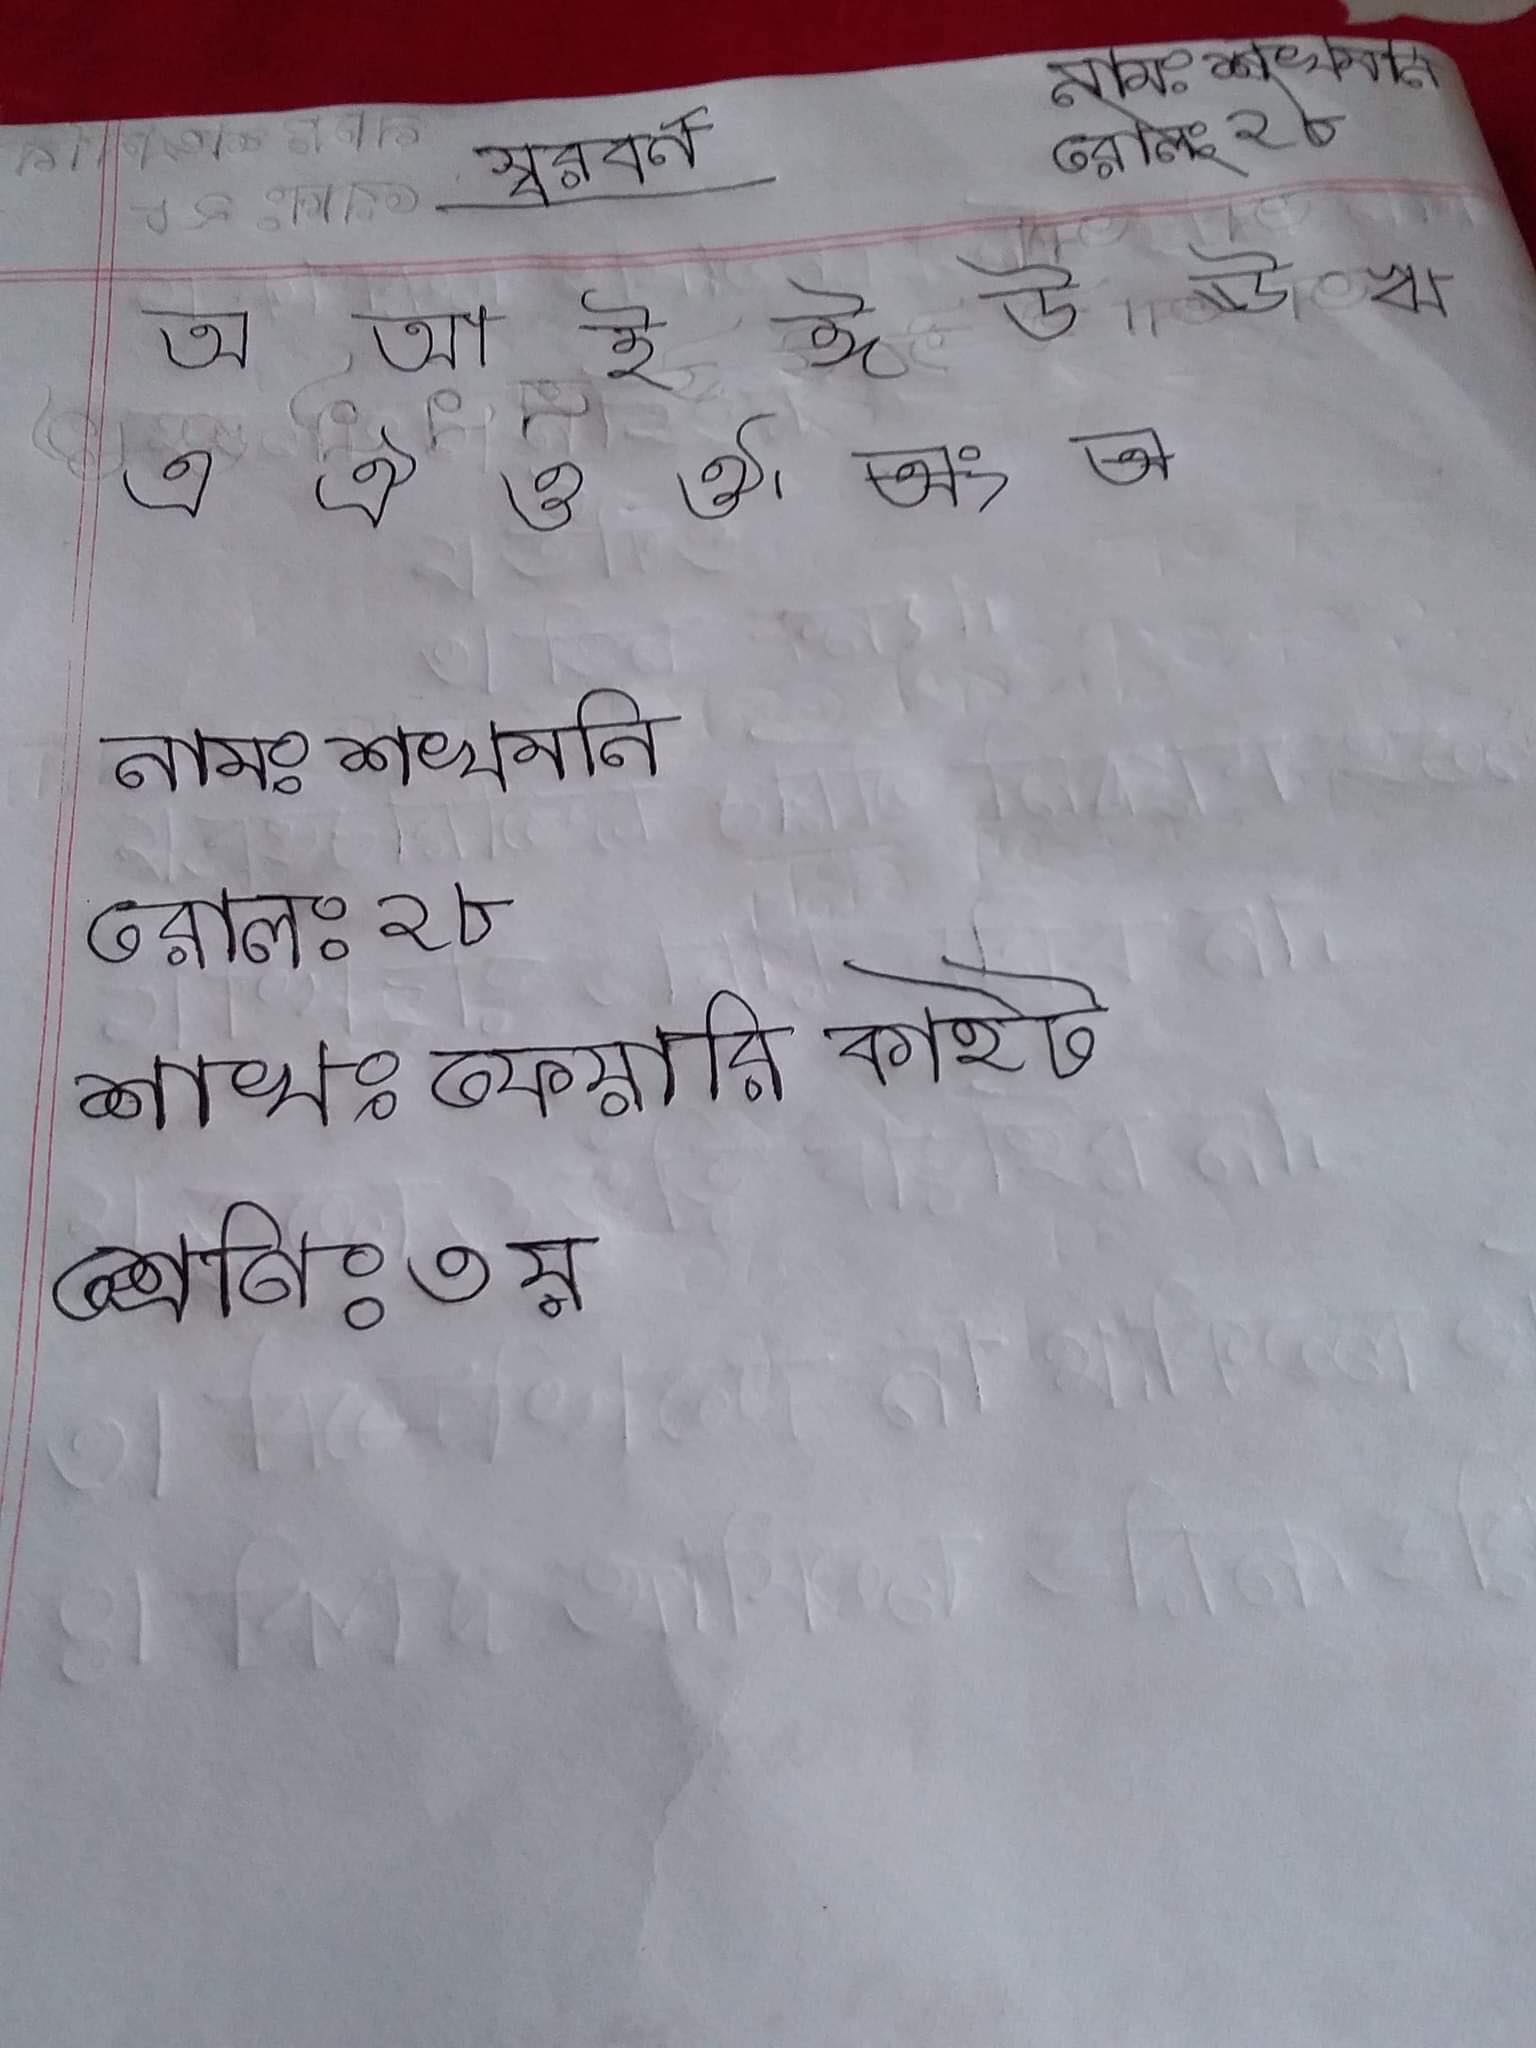 নামঃ শখমনি
রোলঃ ২৮
স্বরবর্ন
অ আ ই ঈ উ ঊ ঋ
এ ঐ ও ঔ অং অ
নামঃ শখমনি
রোলঃ ২৮
শাখঃ ফেয়ারি কাইট
শ্রেনিঃ ৩ য়